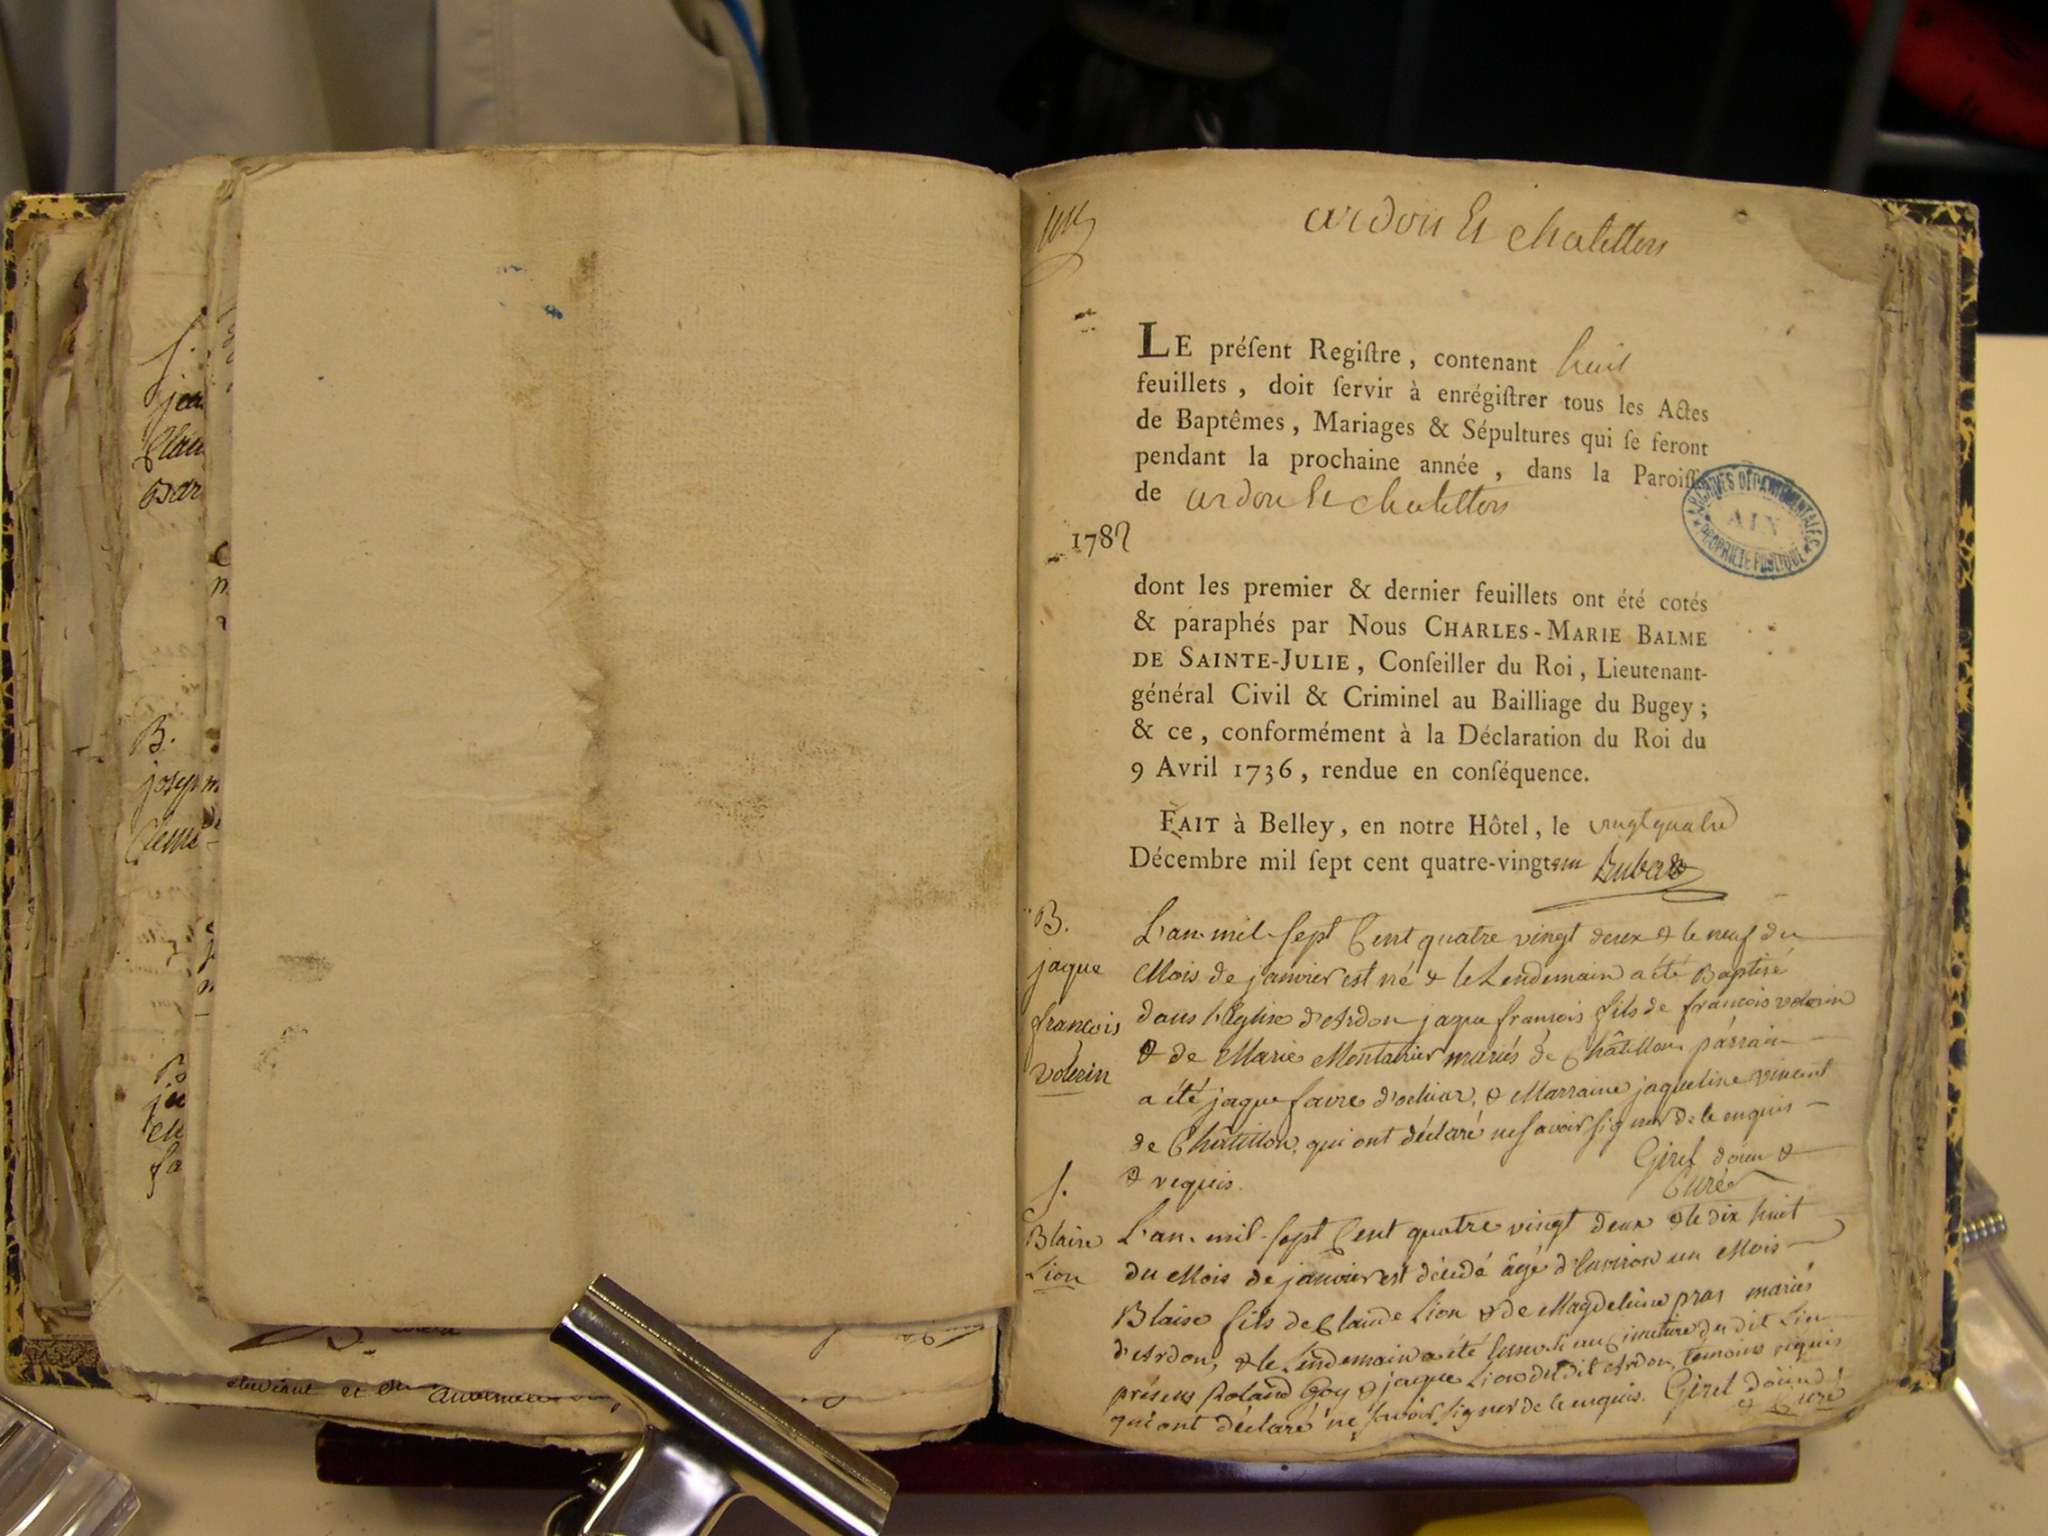 f.
jea
Clau
Bar
B.
joseph
Clem
B
je
fa
ardon Et chatillon
LE préſent Regiſtre, contenant huit
feuillets, doit ſervir à enrégiſtrer tous les Actes
de Baptêmes, Mariages & Sépultures qui ſe feront
pendant la prochaine année, dans la Paroiſſe
de ardon Et chatillon
ARCHIVES DÉPARTEMENTALES
AIN
PROPRIÉTÉ PUBLIQUE
1782
dont les premier & dernier feuillets ont été cotés
& paraphés par Nous CHARLES-MARIE BALME
DE SAINTE-JULIE, Conſeiller du Roi, Lieutenant-
général Civil & Criminel au Bailliage du Bugey;
& ce, conformément à la Déclaration du Roi du
9 Avril 1736, rendue en conſéquence.
FAIT à Belley, en notre Hôtel, le vingt quatre
Décembre mil ſept cent quatre-vingt un
B.
jaque
françois
volerin
L'an mil sept Cent quatre vingt deux & le neuf du
Mois de janvier est né & le Lendemain a été Baptisé
dans l'Eglise d'Ardon jaque francois fils de francois volerin
& de Marie Montanier mariés de Châtillon, parrain
a été jaque favre d'ochiaz, & Marraine jaqueline vincent
de Châtillon, qui ont déclaré ne savoir signer de le enquis
& requis. Girel doïen &
Curé
f.
Blaise
Lion
L'an mil sept Cent quatre vingt deux & le dix huit
du Mois de janvier est décédé âgé d'Environ un Mois
Blaise fils de Claude Lion & de Magdeleine pras mariés
d'Ardon, & le Lendemain a été Enseveli au Cimetiere du dit Lieu
présens Roland Goy & jaque Lion du dit Ardon, temoins requis
qui ont déclaré ne savoir signer de le enquis. Girel doïen
& Curé